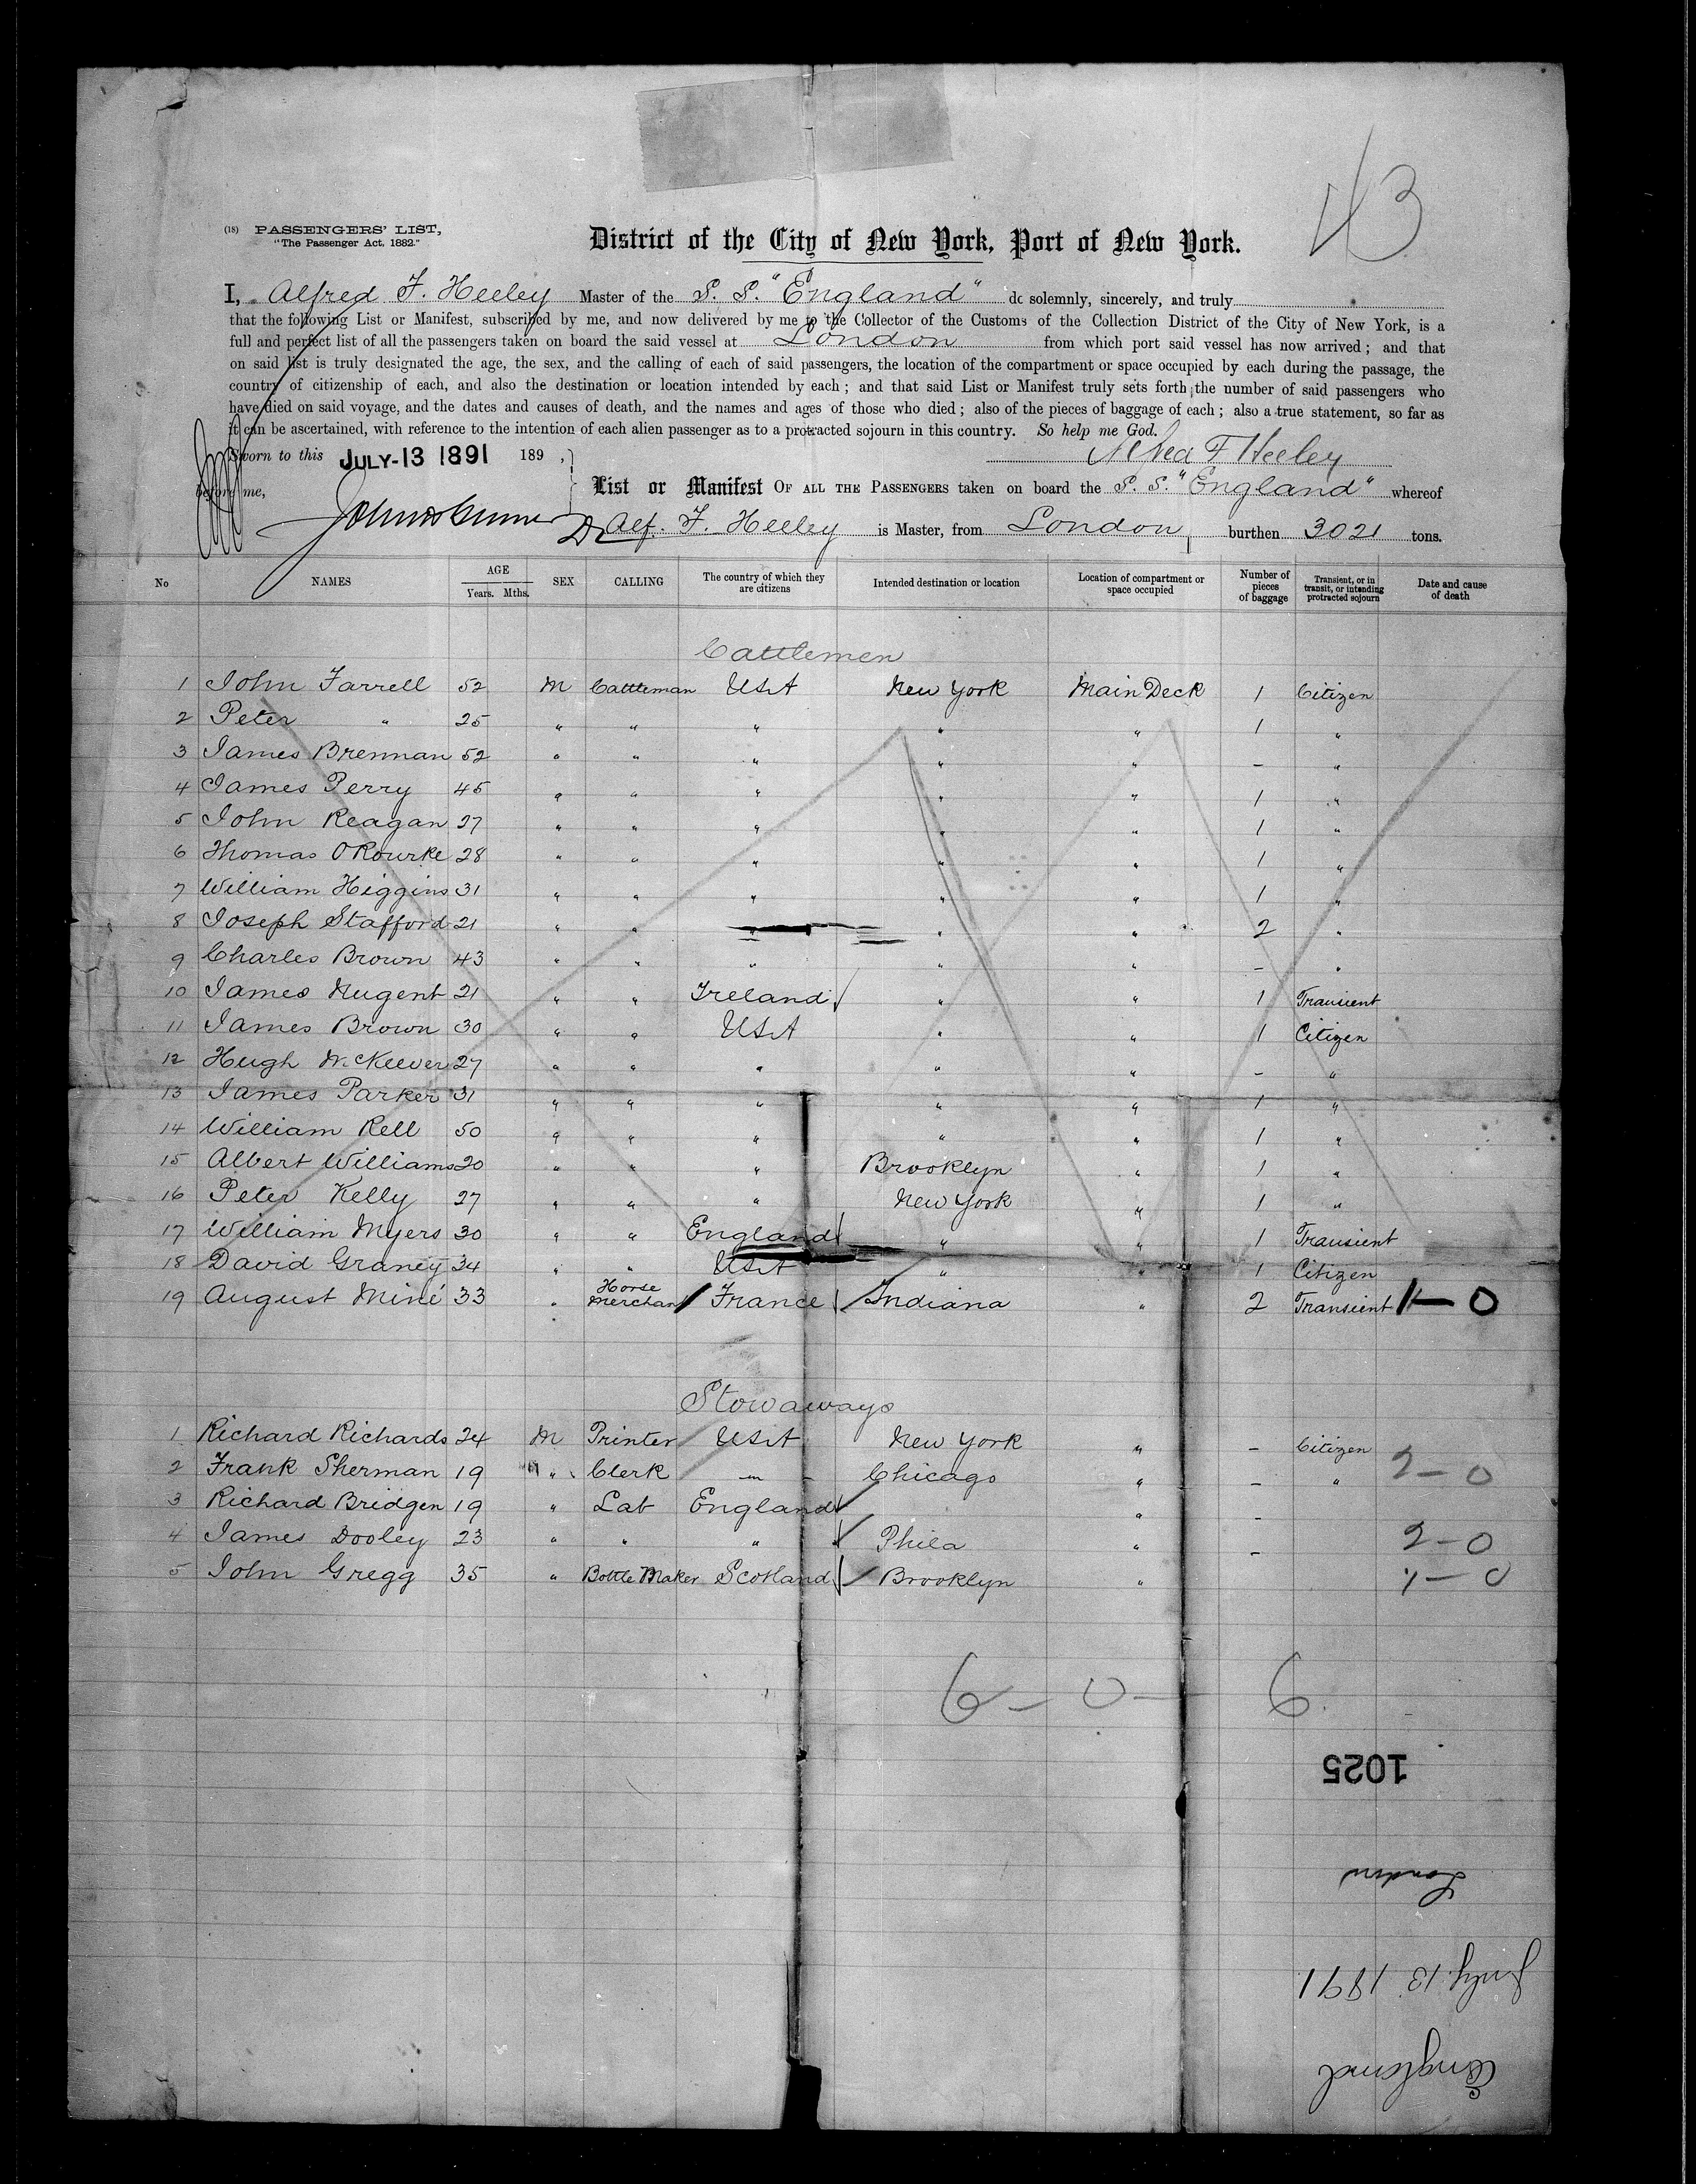 43
(18) PASSENGERS' LIST,
"The Passenger Act, 1882."
District of the City of New York, Port of New York.
I, Alfred F. Heeley Master of the S. S. "England" do solemnly, sincerely, and truly
that the following List or Manifest, subscribed by me, and now delivered by me to the Collector of the Customs of the Collection District of the City of New York, is a
full and perfect list of all the passengers taken on board the said vessel at London from which port said vessel has now arrived; and that
on said list is truly designated the age, the sex, and the calling of each of said passengers, the location of the compartment or space occupied by each during the passage, the
country of citizenship of each, and also the destination or location intended by each; and that said List or Manifest truly sets forth the number of said passengers who
have died on said voyage, and the dates and causes of death, and the names and ages of those who died; also of the pieces of baggage of each; also a true statement, so far as
it can be ascertained, with reference to the intention of each alien passenger as to a protracted sojourn in this country. So help me God.
Sworn to this JULY-13 1891 189 , Alfred F Heeley
before me,
List or Manifest OF ALL THE PASSENGERS taken on board the S. S. "England" whereof
Alf. F. Heeley is Master, from London, burthen 3021 tons.
No NAMES AGE Years. Mths. SEX CALLING The country of which they are citizens Intended destination or location Location of compartment or space occupied Number of pieces of baggage Transient, or in transit, or intending protracted sojourn Date and cause of death
Cattlemen
1 John Farrell 52 M Cattleman USA New York Main Deck 1 Citizen
2 Peter " 25 " " " " " 1 "
3 James Brennan 52 " " " " " - "
4 James Perry 45 " " " " " 1 "
5 John Reagan 27 " " " " " 1 "
6 Thomas O'Rourke 28 " " " " " 1 "
7 William Higgins 31 " " " " " 1 "
8 Joseph Stafford 21 " " " " " 2 "
9 Charles Brown 43 " " " " " - "
10 James Nugent 21 " " Ireland " " 1 Transient
11 James Brown 30 " " USA " " 1 Citizen
12 Hugh McKeever 27 " " " " " - "
13 James Parker 31 " " " " " 1 "
14 William Rell 50 " " " " " 1 "
15 Albert Williams 20 " " " Brooklyn " 1 "
16 Peter Kelly 27 " " " New York " 1 "
17 William Myers 30 " " England " " 1 Transient
18 David Graney 34 " " USA " " 1 Citizen
19 August Miné 33 " Horse Merchant France Indiana " 2 Transient 1-0
Stowaways
1 Richard Richards 24 M Printer USA New York " - Citizen
2 Frank Sherman 19 " Clerk " Chicago " - " 2-0
3 Richard Bridgen 19 " Lab England " -
4 James Dooley 23 " " " Phila " - 2-0
5 John Gregg 35 " Bottle Maker Scotland Brooklyn " 1-0
6 - 0 - 6
1025
London
July 13 1891
England